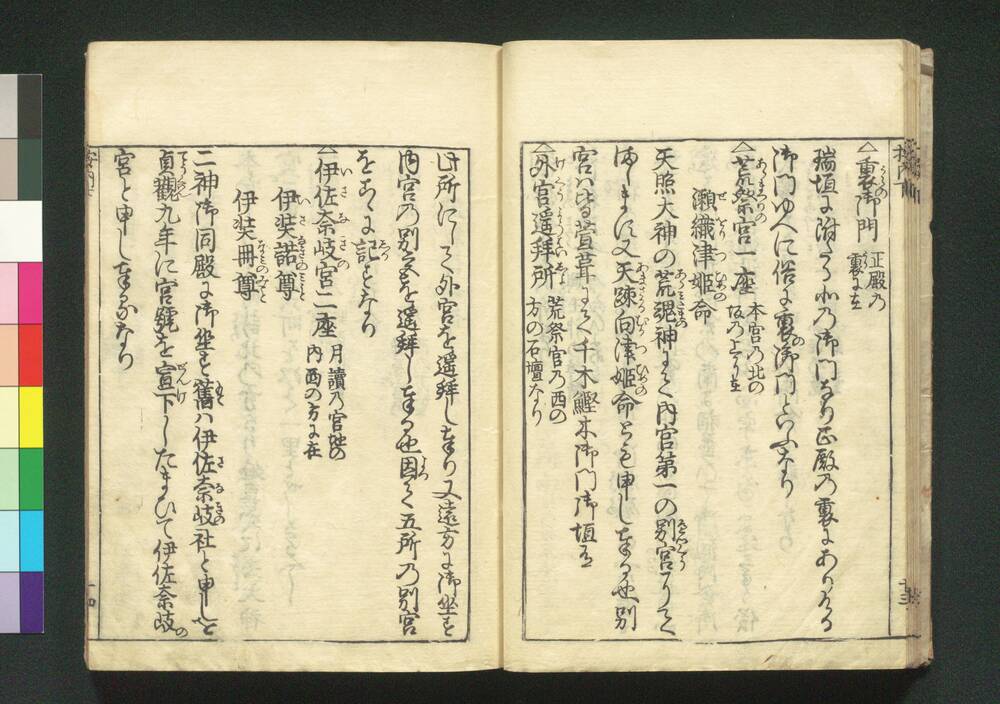 △裏御門 正殿乃
裏に在
瑞垣に附たる北乃御門なり正殿乃裏にありける
御門ゆへに俗に裏御門といふなり
△荒祭宮一座 本宮乃北の
坂乃上に在
瀬織津姫命
天照大神の荒魂神にて内宮第一の別宮にて
ましますに又天疎向津姫命とも申し奉る也別
宮は萱葺にて千木鰹木御門御垣有
△外宮遥拝所 荒祭宮乃西の
方の石壇なり
此所にして外宮を遥拝し奉り又遠方に御坐す
内宮乃別宮を遥拝し奉る也因て五所乃別宮
をこゝに記すなり
△伊佐奈岐宮二座 月讀乃宮地の
内西の方に在
伊弉諾尊
伊弉冊尊
二神御同殿に御坐す舊は伊佐奈岐社と申しを
貞觀九年に宮號を宣下したまひて伊佐奈岐
宮と申し奉るなり